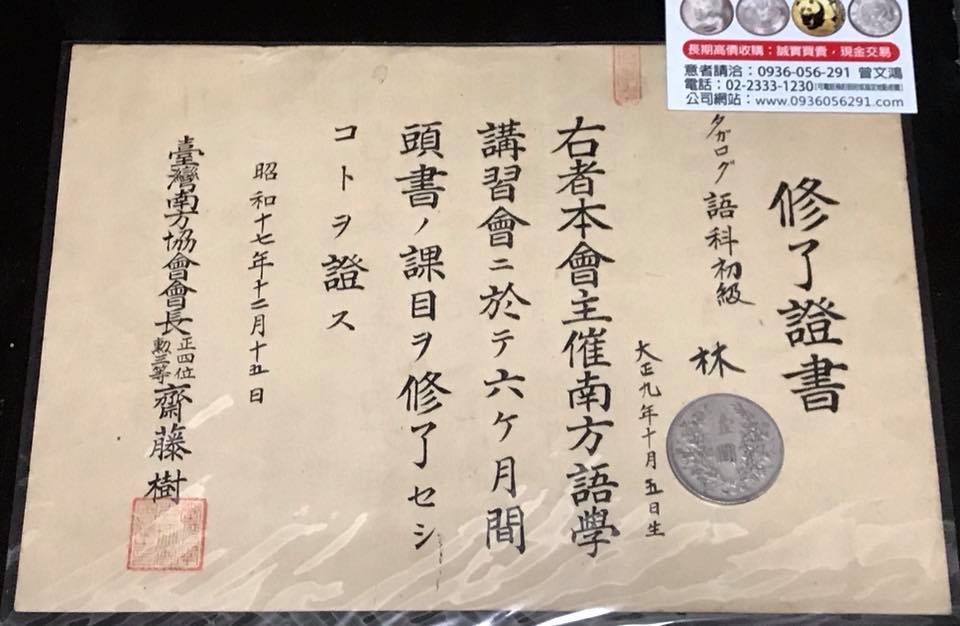 修了證書
タガログ語科初級
林
大正九年十月五日生
右者本會主催南方語學
講習會ニ於テ六ケ月間
頭書ノ課目ヲ修了セシ
コトヲ證ス
昭和十七年十二月十五日
臺灣南方協會會長正四位勲三等齋藤樹
長期高價收購：誠實買賣，現金交易
意者請洽：0936-056-291 曾文鴻
電話：02-2333-1230
公司網站：www.0936056291.com
壹圓